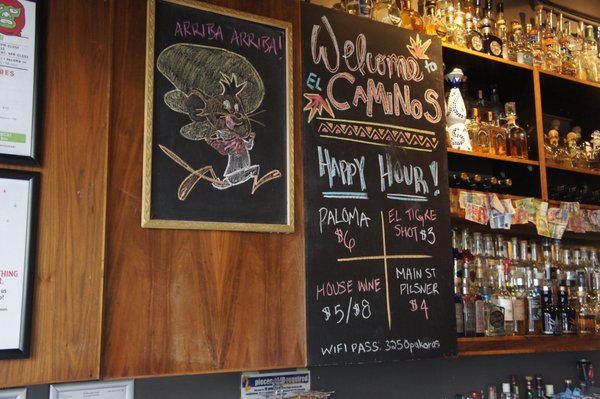 ARRIBA ARRIBA!
Welcome to
EL
CAMINOS
HAPPY HOUR!
PALOMA
$6
EL TIGRE
SHOT $3
HOUSE WINE
$5/$8
MAIN ST
PILSNER
$4
WIFI PASS: 3250pakaros
THING